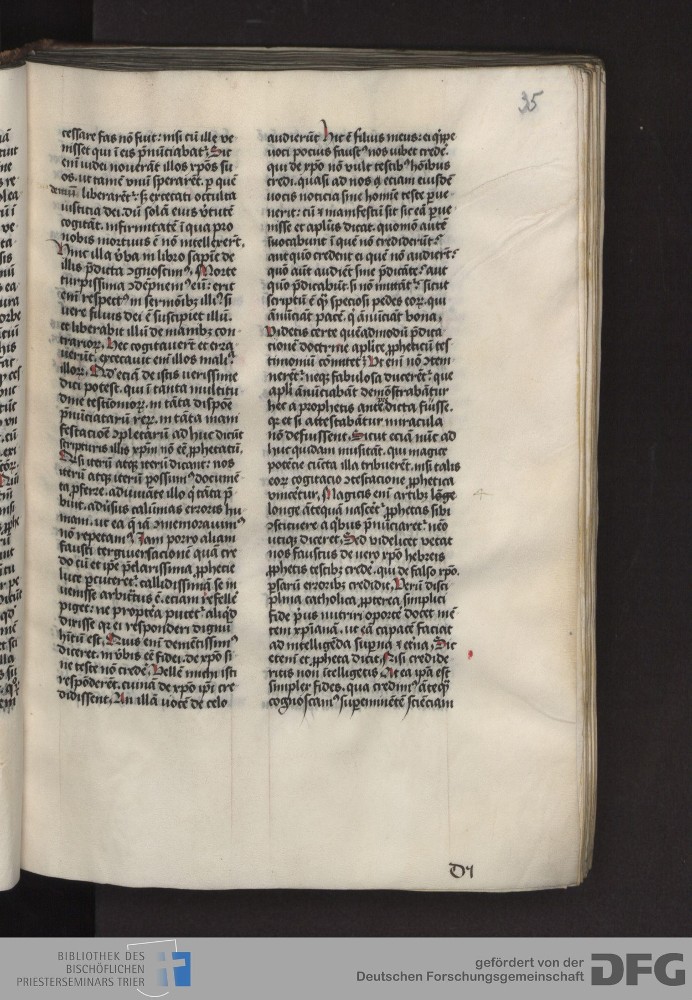 35
cessare fas nō fuit: nisi cū ille ve
nisset qui ī eis p̄nūciabat᷑. Sic
em̄ iudei nouerāt illos xp̄os su
os. ut tamē vnū sperarēt. p quē
demū liberarēt᷑: s; excecati occulta
iusticia dei. dū solā eius v̓tutē
cogitāt. infirmitatē ī qua pro
nobis mortuus ē nō intellexerūt.
Hinc illa v̓ba in libro sapiē de
illis p̄dicta ꝯgnoscim᷒. Morte
turpissima ꝯdēpnem᷒ eū: erit
em̄ respect᷒ in sermōibꝫ illi᷒. si
vere filius dei ē suscipiet illū.
et liberabit illū de manibꝫ con
trarioꝝ. Hec cogitauerūt et erra
uerūt. excecauit em̄ illos malic᷒
illoꝝ. Qd̓ eciā de istis verissime
dici potest. qui ī tanta multitu
dine testīonioꝝ. in tāta disposiōe
p̄nūciatarū reꝝ. in tāta mani
festacioē ꝯpletarū ad huc dicūt
scripturis illis xp̄m nō eē ꝓphetatū.
Qd̓ si iterū atqꝫ iterū dicant: nos
iterū atqꝫ iterū possum᷒ documē
ta ꝓferre. adiuuāte illo q̓ tāta p̄
buit. adūsus calūnias erroris hu
mani. ut ea q̄ iā ꝯmemorauim᷒
nō repetam᷒. Iam porro aliam
fausti tergiuersacionē quā cre
do cū et ip̄e p̄clarissima ꝓphecie
luce ꝑcuteret᷑. callidissimā se in
uenisse arbitrat᷒ ē. eciam refelle
piget: ne ꝓpterea putet᷑ aliqd̓
dixisse qꝛ ei responderi dignū
h̓itū est. Quis eni demētissim᷒
diceret. in v̓bis eē fidei. de xp̄o si
ne teste nō credē. Vellē michi isti
respōderēt. cuinā de xp̄o ip̄i cre
didissent. An illā vocē de celo
audierūt Hic ē filius meus: ei q̓ppe
voci pocius faust᷒ nos iubet credē.
qui de xp̄o nō vult testibꝫ hōibus
credi. quasi ad nos q̄ eciam eiusdē
vocis noticia sine homīe teste ꝑue
nerit: cū ꝫ manifestū sit sic eā ꝑue
nisse et apl̓us dicat. quomō autē
īuocabunt ī quē nō crediderūt?
aut quō credent ei quē nō audierūt?
quō aūt audiēt sine p̄dicāte? aut
quō p̄dicabūt si nō mittāt᷑? sicut
scriptū ē q̓ꝫ speciosi pedes eoꝝ. qui
ānūciāt pacē. q̓ ānūciāt bona.
Videtis certe quēadmodū p̄dica
tionē doctrine apl̓ice ꝓpheticū tes
timoniū comitet᷑. Vt em̄ nō ꝯtem
neret᷑. neqꝫ fabulosa duceret᷑. que
apl̓i ānūciabāt demōstrabātur
hec a prophetis ante p̄dicta fuisse.
qꝛ et si attestabātur miracula
nō defuissent. Sicut eciā nūc ad
huc quidam musitāt. qui magice
potēcie cūcta illa tribuerēt. nisi talis
eoꝝ cogitacio ꝯtestacione ꝓphetica
vincētur. Magicis em̄ artibꝫ lōge
longe ātequā nascēt᷑ ꝓphetas sibi
ꝯstituere a qbus p̄nūciaret᷑. nēo
vtiqꝫ diceret. Sed videlicet vetat
nos faustus de vero xp̄o hebreis
ꝓphetis testibꝫ credē. qui de falso xp̄o.
ꝑsarū erroribꝫ credidit. Verū disci
plina catholica. ꝓpterea simplici
fide p̓us nutriri oportē docet mē
tem xp̄ianā. ut eā capacē faciat
ad intelligēda sup̄na ꝫ et̓na. Sic
etem̄ et ꝓpheta dicit. Nisi credide
ritis non ītelligetis. Et ea ip̄a est
simplex fides. qua credim᷒ āteqꝫ
cognoscam᷒ sup̄eminētē sciēciam
BIBLIOTHEK DES
BISCHÖFLICHEN
PRIESTERSEMINARS TRIER
gefördert von der
Deutschen Forschungsgemeinschaft
DFG